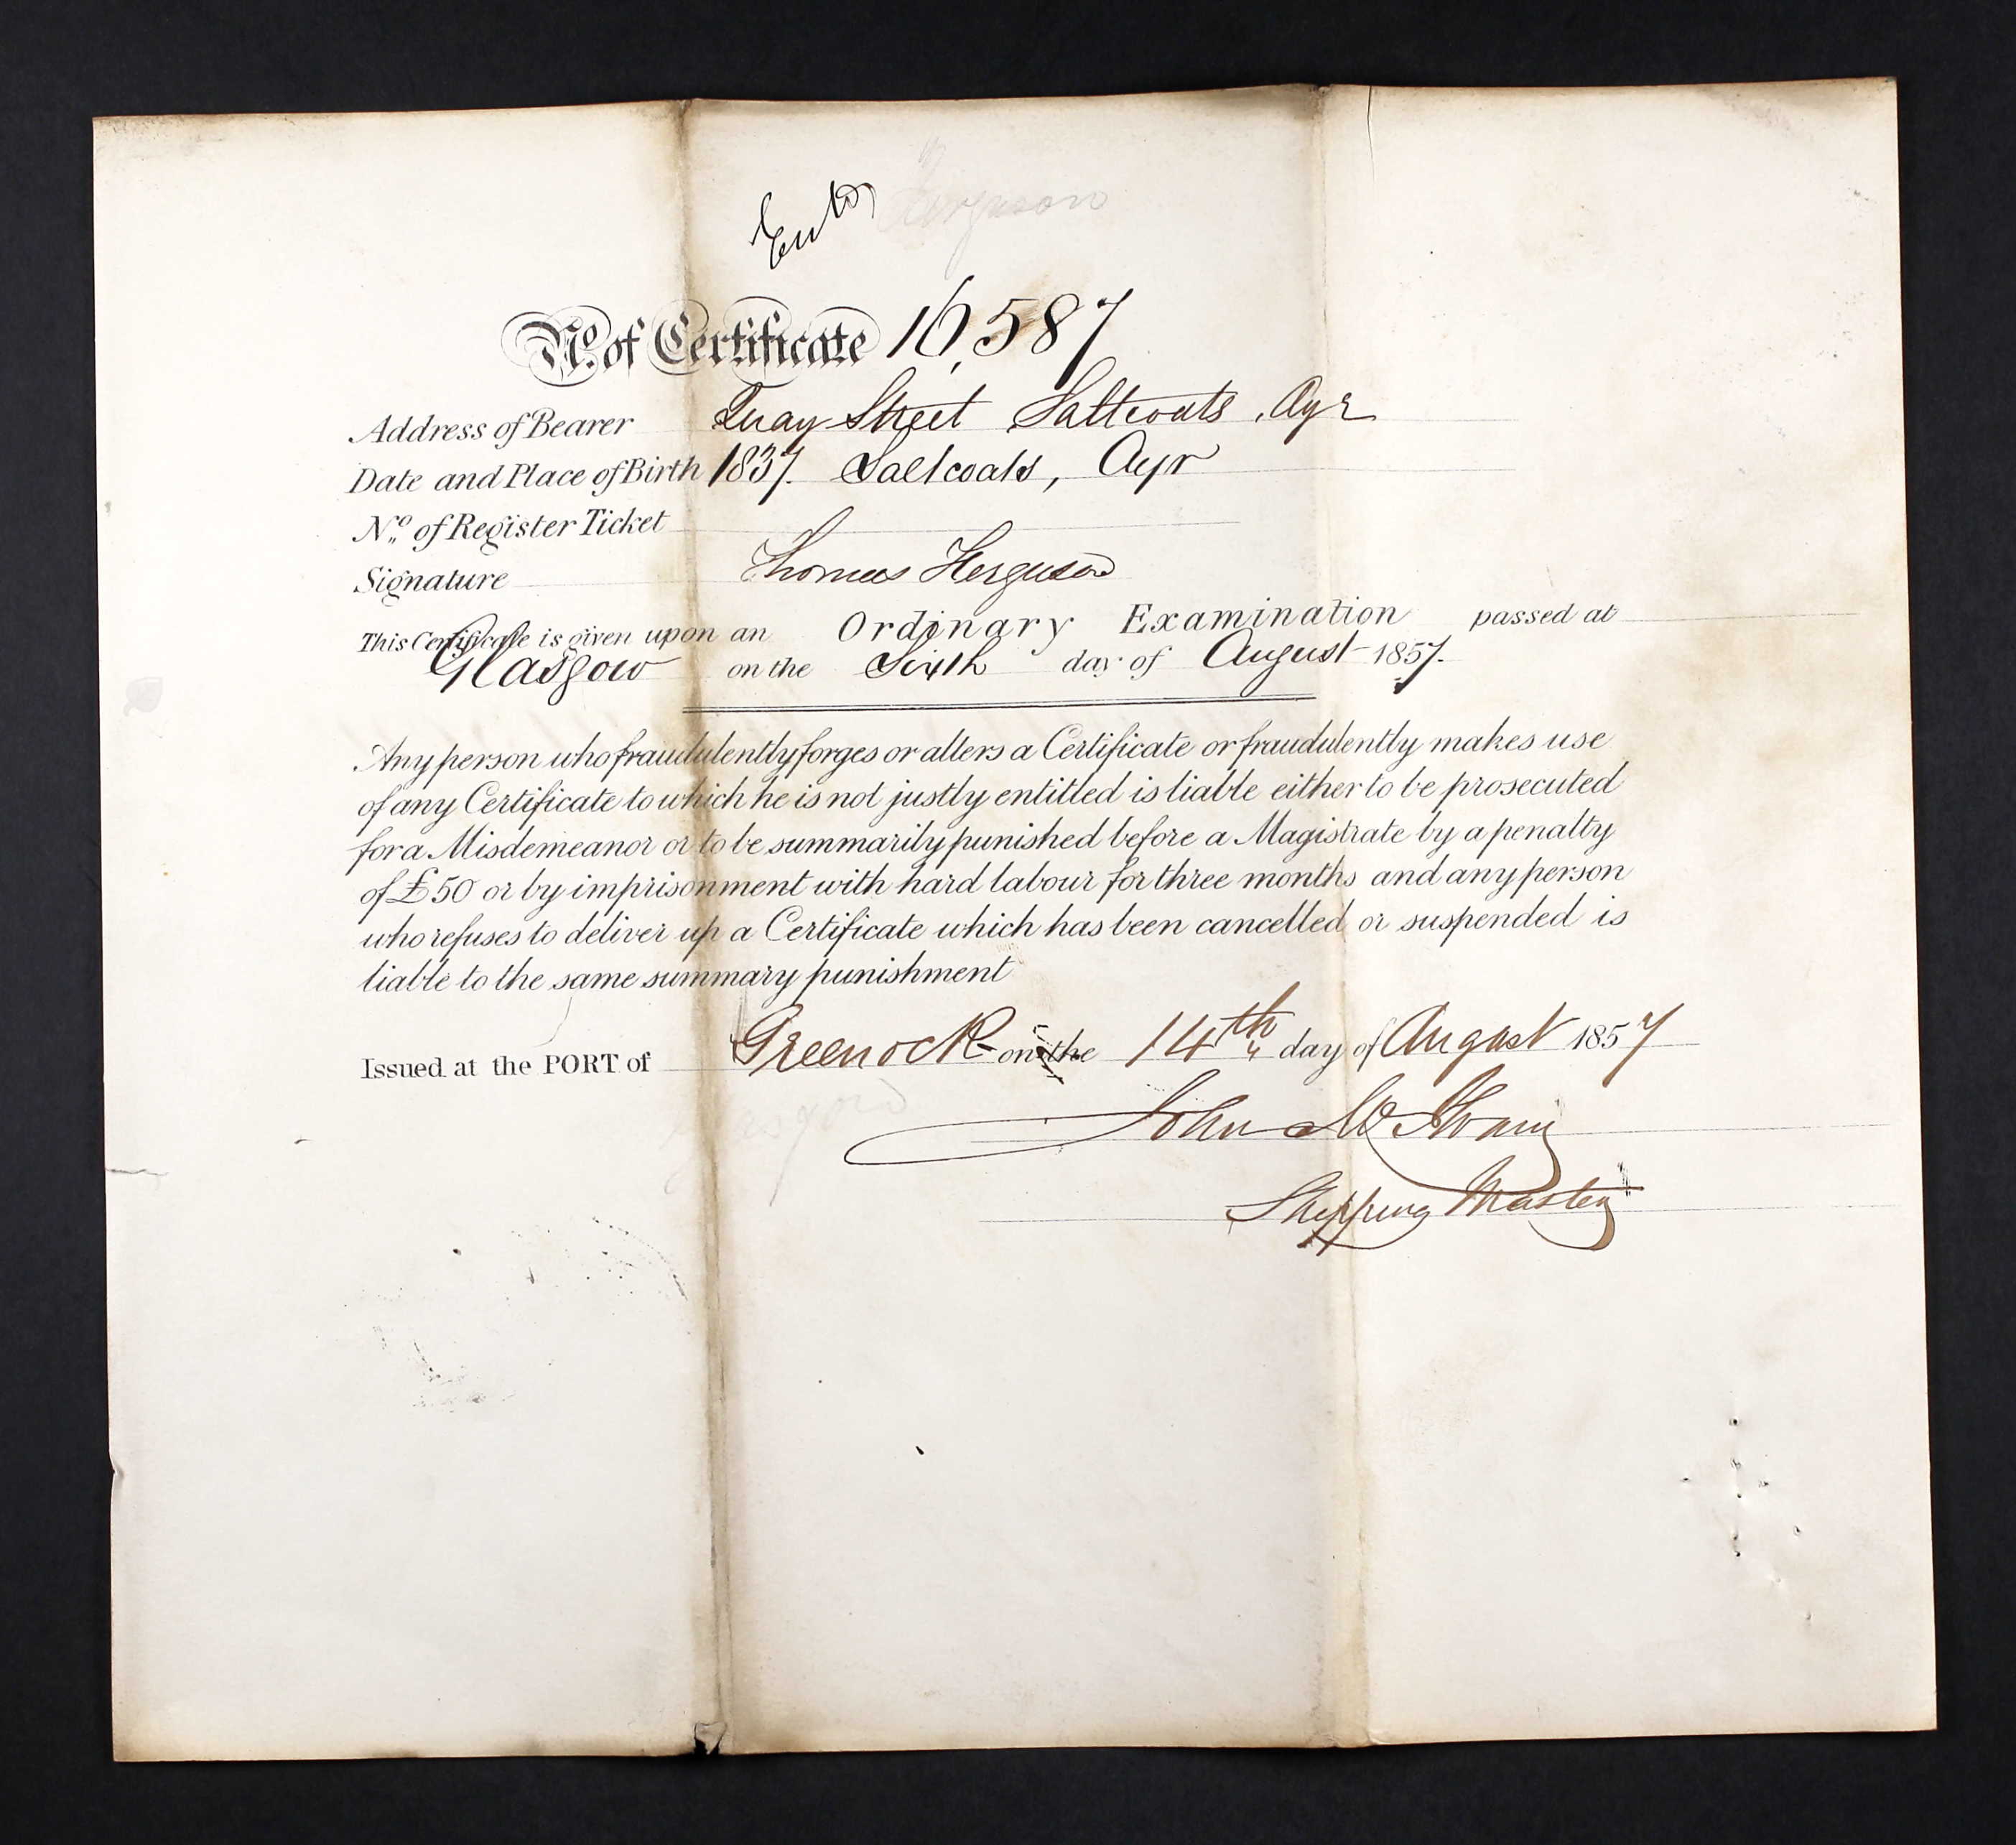 Ferguson
No. of Certificate 16,587
Address of Bearer Quay Street Saltcoats, Ayr
Date and Place of Birth 1837. Saltcoats, Ayr
No. of Register Ticket
Signature Thomas Ferguson
This Certificate is given upon an Ordinary Examination passed at
Glasgow on the Sixth day of August 1857.
Any person who fraudulently forges or alters a Certificate or fraudulently makes use
of any Certificate to which he is not justly entitled is liable either to be prosecuted
for a Misdemeanor or to be summarily punished before a Magistrate by a penalty
of £50 or by imprisonment with hard labour for three months and any person
who refuses to deliver up a Certificate which has been cancelled or suspended is
liable to the same summary punishment
Issued at the PORT of Greenock on the 14th day of August 1857
Glasgow
John
Shipping Master